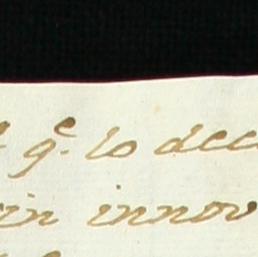 q.e lo dec
in innov